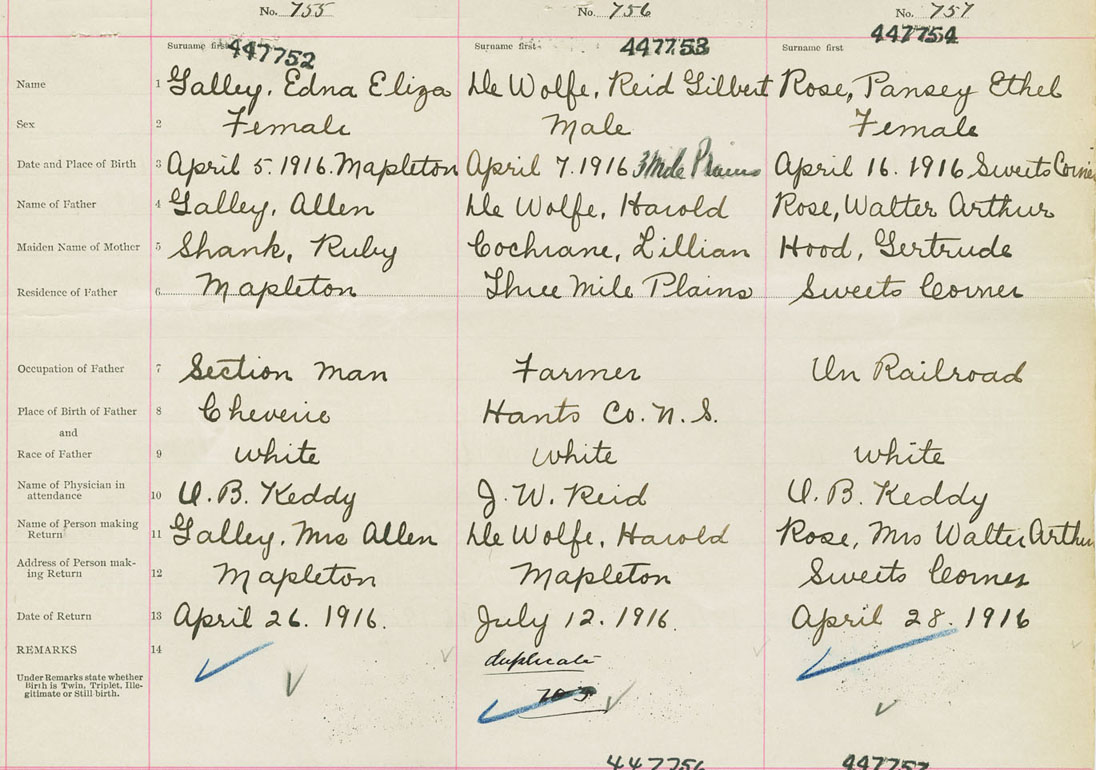 No. 755 No. 756 No. 757
Surname first 447752 Surname first 447753 Surname first 447754
Name 1 Galley, Edna Eliza De Wolfe, Reid Gilbert Rose, Pansey Ethel
Sex 2 Female Male Female
Date and Place of Birth 3 April 5. 1916. Mapleton April 7. 1916 3 Mile Plains April 16. 1916 Sweets Corner
Name of Father 4 Galley, Allen De Wolfe, Harold Rose, Walter Arthur
Maiden Name of Mother 5 Shank, Ruby Cochrane, Lillian Hood, Gertrude
Residence of Father 6 Mapleton Three Mile Plains Sweets Corner
Occupation of Father 7 Section man Farmer On Railroad
Place of Birth of Father 8 Cheverie Hants Co. N.S.
and
Race of Father 9 white white white
Name of Physician in
attendance 10 O. B. Keddy J. W. Reid O. B. Keddy
Name of Person making
Return 11 Galley, Mrs Allen De Wolfe, Harold Rose, Mrs Walter Arthur
Address of Person mak-
ing Return 12 Mapleton Mapleton Sweets Corner
Date of Return 13 April 26. 1916. July 12. 1916. April 28. 1916
REMARKS 14 duplicate
Under Remarks state whether
Birth is Twin, Triplet, Ille-
gitimate or Still birth.
447756 447757